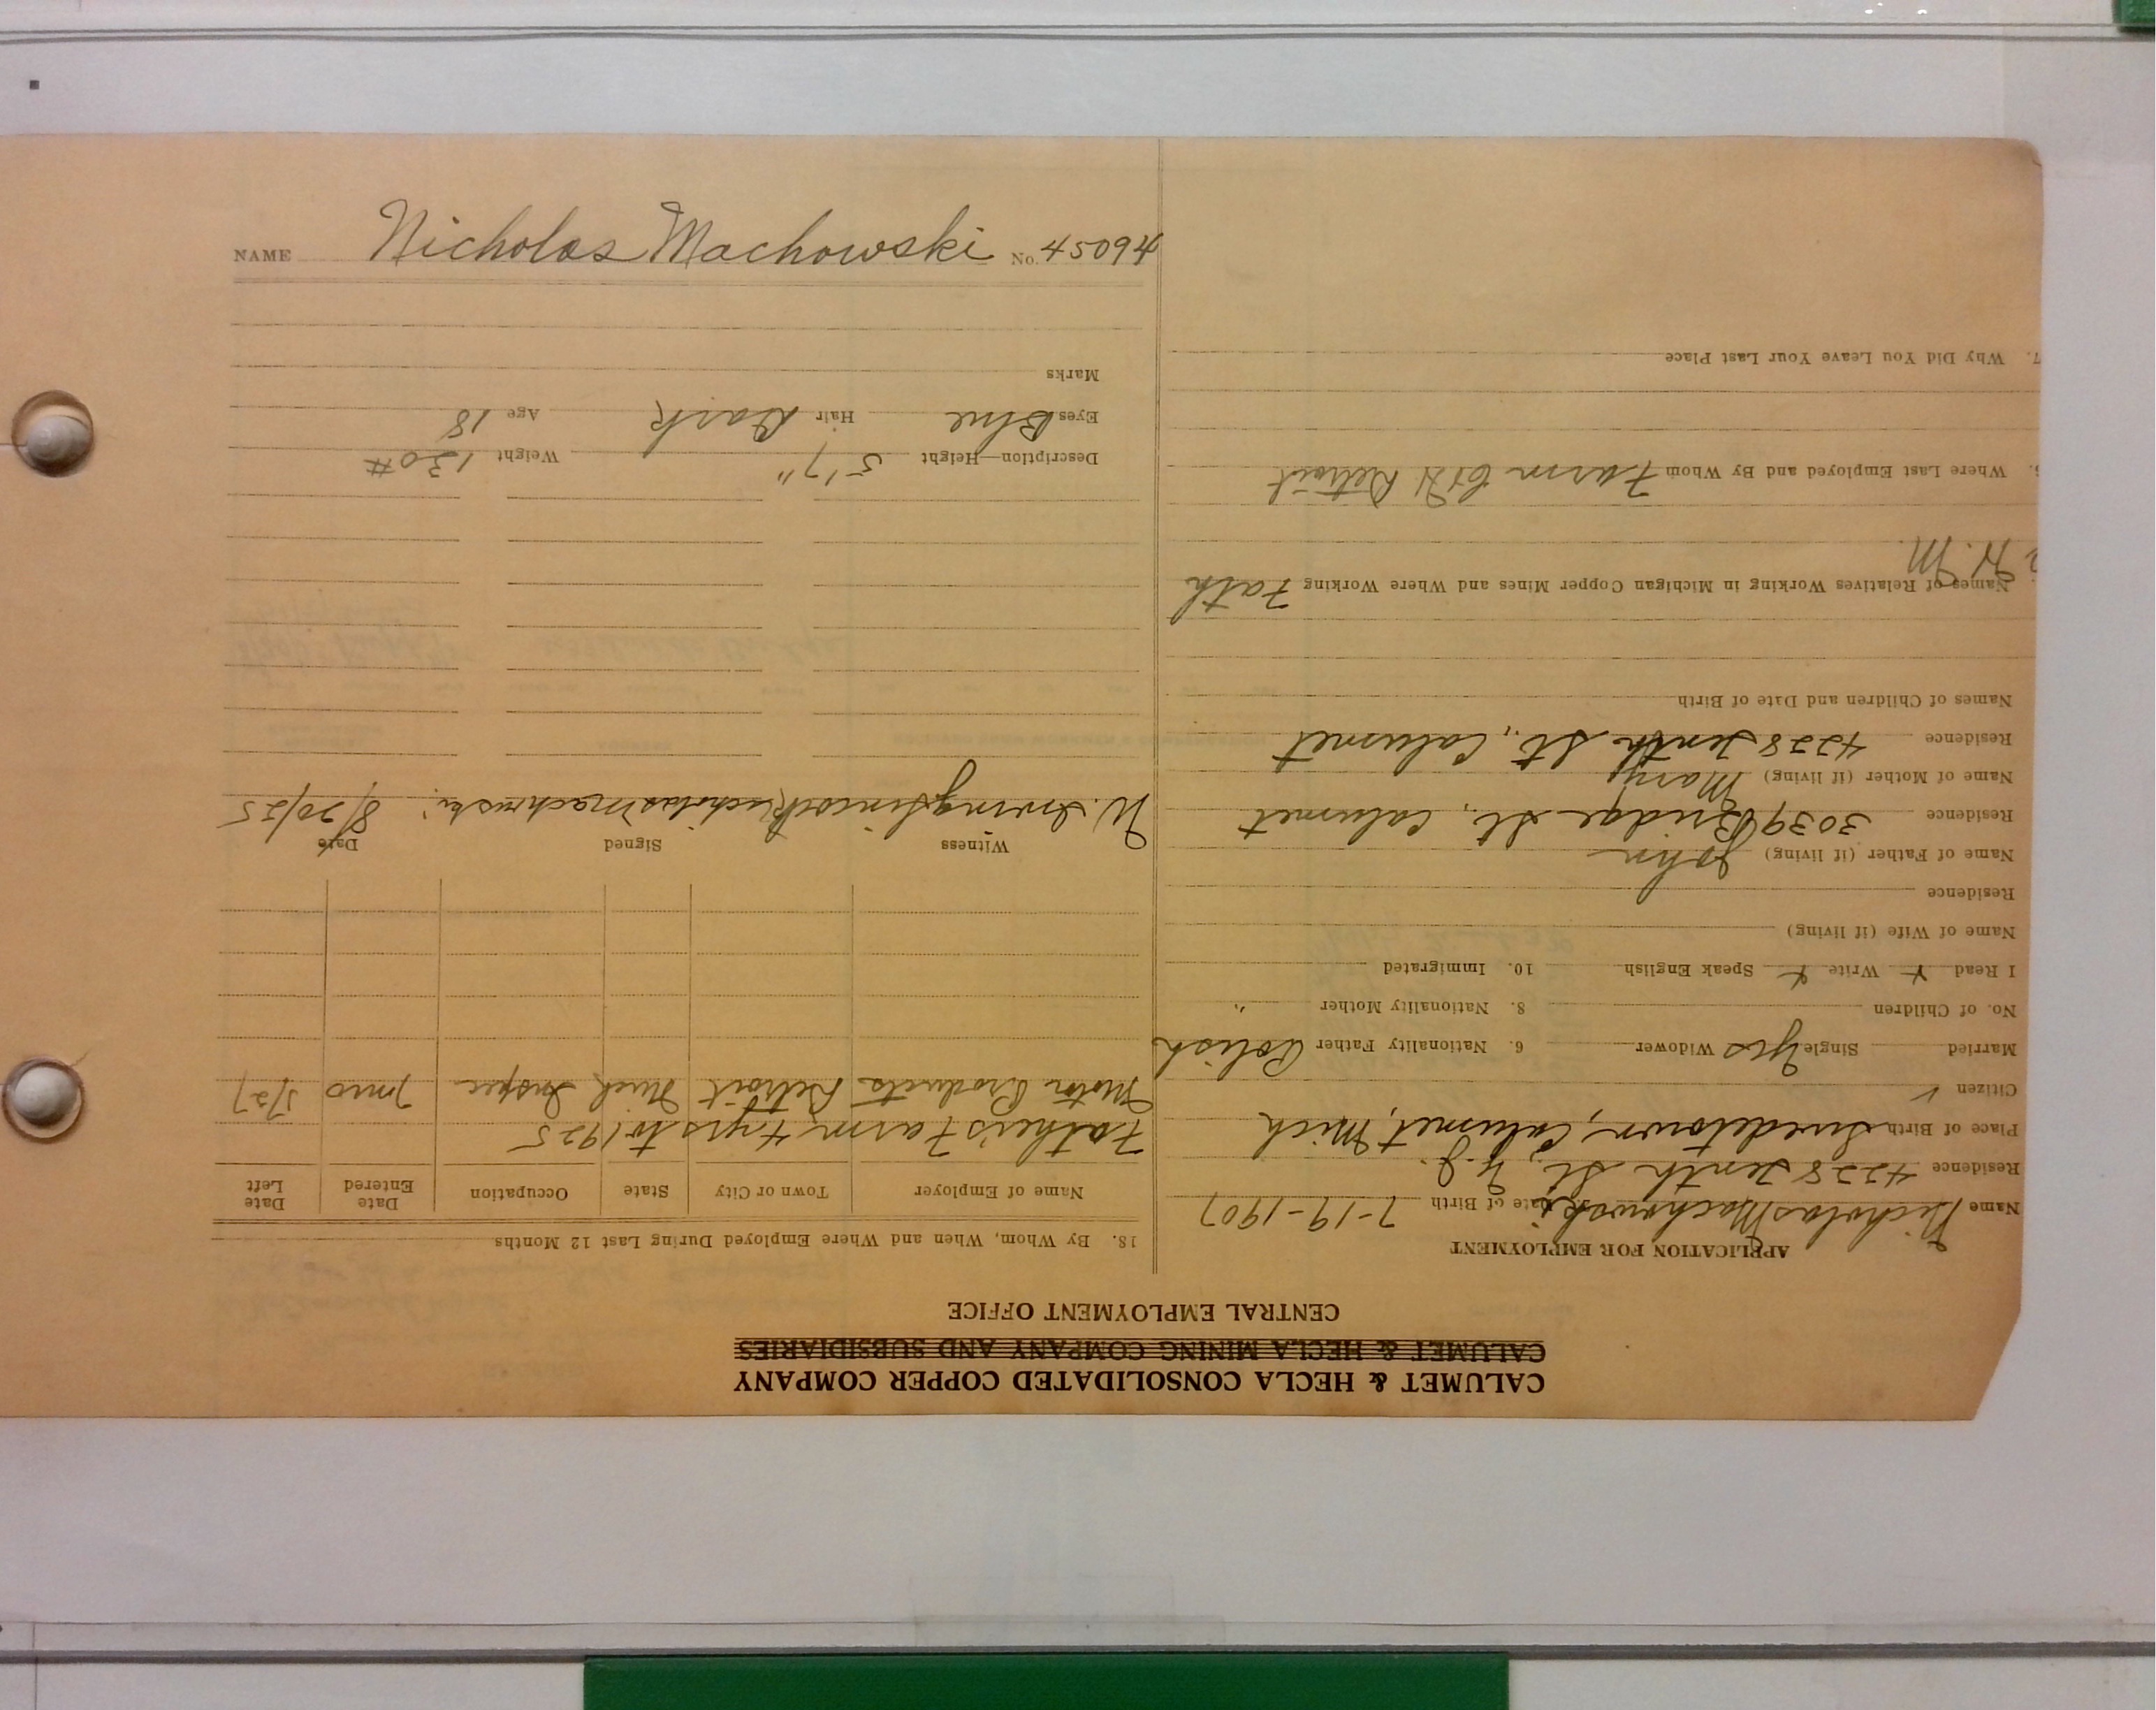 CALUMET & HECLA CONSOLIDATED COPPER COMPANY
CALUMET & HECLA MINING COMPANY AND SUBSIDIARIES
CENTRAL EMPLOYMENT OFFICE
APPLICATION FOR EMPLOYMENT
Name Nicholas Machowski Date of Birth 7-19-1907
Residence 4228 Tenth St, Y.J.
Place of Birth Swedetown, Calumet, Mich
Citizen ✓
Married Single Yes Widower 6. Nationality Father Polish
No. of Children 8. Nationality Mother "
I Read x Write x Speak English 10. Immigrated
Name of Wife (if living)
Residence
Name of Father (if living) John
Residence 3039 Bridge St., Calumet
Name of Mother (if living) Mary
Residence 4228 Tenth St., Calumet
Names of Children and Date of Birth
Names of Relatives Working in Michigan Copper Mines and Where Working Fath
H.M.
Where Last Employed and By Whom Farm C&H Detroit
7. Why Did You Leave Your Last Place
18. By Whom, When and Where Employed During Last 12 Months
Name of Employer Town or City State Occupation Date Entered Date Left
Father's Farm 4 yrs to 1925
Motor Products Detroit Mich Inspec 7 mos 5/27
Witness Signed Date
W. Irving Nicholas Machowski 8/20/25
Description—Height 5'7" Weight 130#
Eyes Blue Hair Dark Age 18
Marks
NAME Nicholas Machowski No. 45094